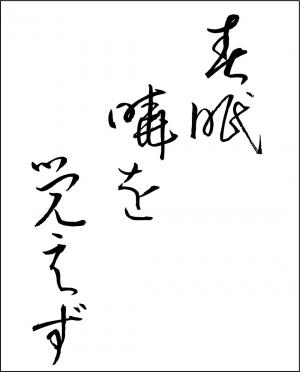 春眠
暁を
覚えず